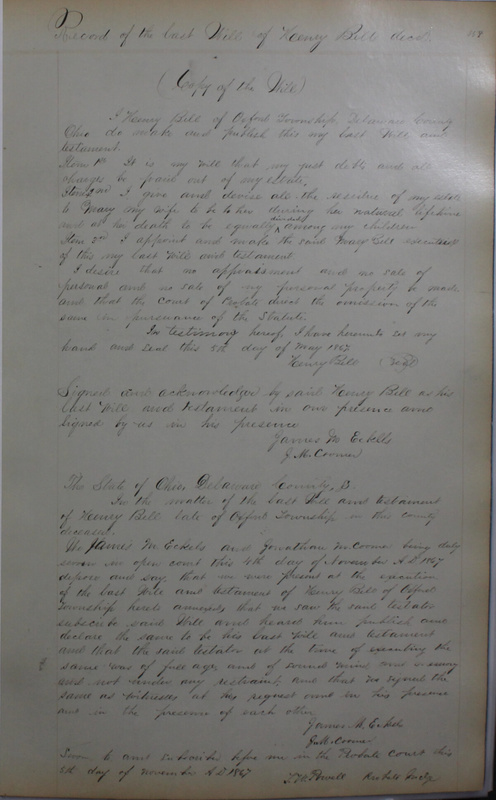 Record of the Last Will of Henry Bell decd. 159
(Copy of the Will)
I Henry Bell of Oxford Township Delaware County
Ohio do make and publish this my last Will and
testament.
Item 1st It is my will that my just debts and all
charges be paid out of my estate.
Item 2nd I give and devise all the residue of my estate
to Mary my wife to be to her during her natural lifetime
and at her death to be equally divided among my children
Item 3rd I appoint and make the said Mary Bell executrix
of this my last will and testament.
I desire that no appraisment and no sale of
personal and no sale of my personal property be made
and that the Court of Probate direct the omission of the
same in pursuance of the Statute.
In testimony hereof I have hereunto set my
hand and seal this 5th day of May 1867
Henry Bell (Seal)
Signed and acknowledged by said Henry Bell as his
last Will and testament in our presence and
signed by us in his presence
James M Eckels
J. McCoomer
The State of Ohio, Delaware County, S.
In the matter of the last Will and testament
of Henry Bell late of Oxford Township in this county
deceased.
We James M. Eckels and Jonathan McCoomer being duly
sworn in open court this 4th day of November A.D. 1867
depose and say, that we were present at the execution
of the last Will and testament of Henry Bell of Oxford
Township hereto annexed, that we saw the said testator
subscribe said Will and heard him publish and
declare the same to be his last will and testament
and that the said testator at the time of executing the
same was of full age, and of sound mind and memory
and not under any restraint, and that we signed the
same as witnesses at his request and in his presence
and in the presence of each other.
James M. Eckels
J. McCoomer
Sworn to and subscribed before me in the Probate Court this
4th day of November A.D. 1867 Powell Probate Judge